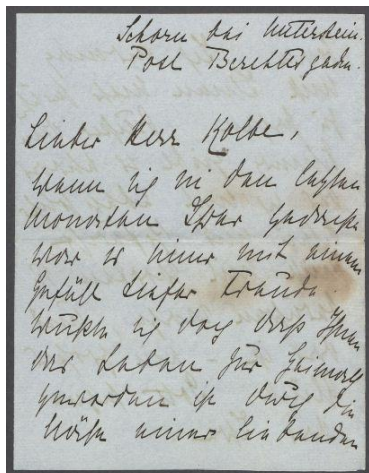 Schorn bei Unterstein.
Post Berchtesgaden.
Lieber Herr Kolbe,
wenn ich in den letzten
Monaten Ihrer gedachte
war es immer mit einem
Gefühl tiefer Freude.
Wußte ich doch daß Ihnen
das Leben zur Heimat
geworden ist durch die
Nähe einer liebenden